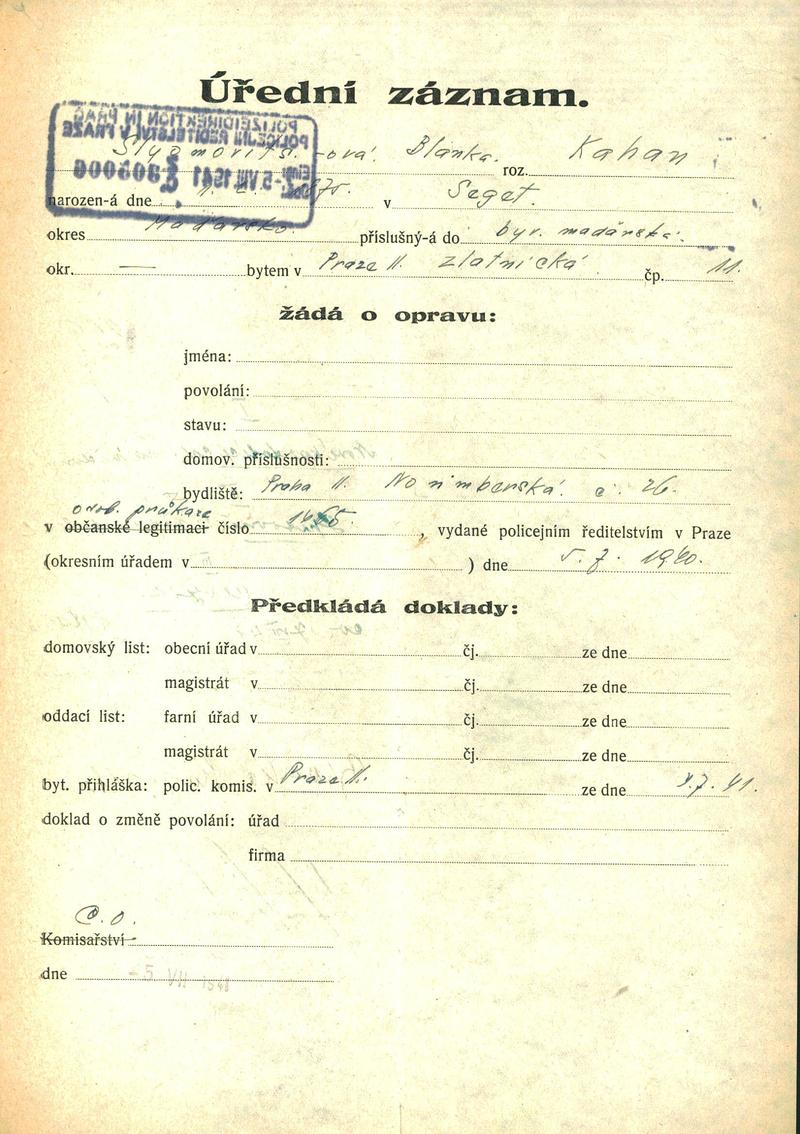 Úřední záznam.
POLIZEIDIREKTION IN PRAG
POLICEJNÍ ŘEDITELSTVÍ V PRAZE
-5. VIII. 1941
-ová. Blanka. roz. Kahan
narozen-á dne 1875. v Seget.
okres Maďarsko. příslušný-á do byv. maďarská.
okr. — bytem v Praze II. Zlatnická čp. 11.
žádá o opravu:
jména:
povolání:
stavu:
domov. příslušnosti:
bydliště: Praha II. Norimberská. č. 26.
osob. průkaze
v občanské legitimaci číslo , vydané policejním ředitelstvím v Praze
(okresním úřadem v ) dne 5. 7. 1940.
Předkládá doklady:
domovský list: obecní úřad v čj. ze dne
magistrát v čj. ze dne
oddací list: farní úřad v čj. ze dne
magistrát v čj. ze dne
byt. přihláška: polic. komis. v Praze II. ze dne 7. 41.
doklad o změně povolání: úřad
firma
Komisařství
dne -5. VII